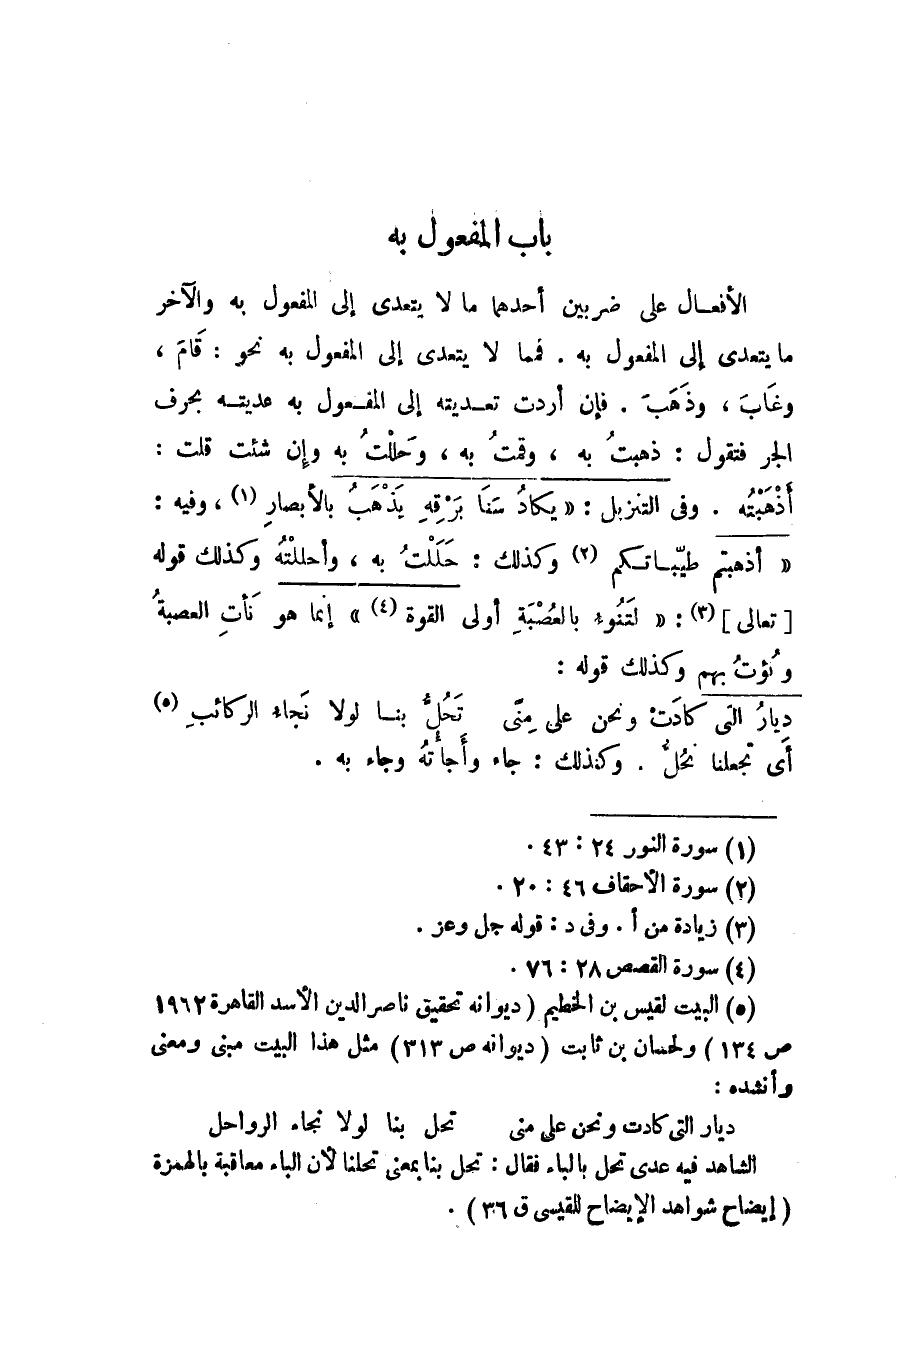 باب المفعول به
الأفعـال على ضربين أحدهما ما لا يتعدى إلى المفعول به والآخر
ما يتعدى إلى المفعول به . فما لا يتعدى إلى المفعول به نحو : قَامَ ،
وغَابَ ، وذَهَبَ . فإن أردت تعـديته إلى المفـعول به عديتـه بحرف
الجر فتقول : ذهبتُ به ، وقمتُ به ، وحَللْتُ به وإن شئت قلت :
أَذْهَبْتُه . وفى التنزيل : « يكادُ سَنَا بَرْقِهِ يَذْهَبُ بالأبصارِ (١) ، وفيه :
« أذهبتم طيّبـاتـكم (٢) وكذلك : حَلَلْتُ به ، وأحللْتُهُ وكذلك قوله
[ تعالى ] (٣) : « لتَنُوءُ بالعُصْبَةِ أولى القوة (٤) » إنما هو نَأتِ العصبةُ
ونُؤتُ بهم وكذلك قوله :
دِيارُ التى كادَتْ ونحن على مِنًى تَحُلُّ بنـا لولا نَجاءُ الركائبِ (٥)
أى تجعلنا نحُلُّ . وكذلك : جاء وأَجأْتهُ وجاء به .
(١) سورة النور ٢٤ : ٤٣ .
(٢) سورة الأحقاف ٤٦ : ٢٠ .
(٣) زيادة من أ . وفى د : قوله جل وعز .
(٤) سورة القصص ٢٨ : ٧٦ .
(٥) البيت لقيس بن الخطيم ( ديوانه تحقيق ناصر الدين الأسد القاهرة ١٩٦٢
ص ١٣٤ ) ولحسان بن ثابت ( ديوانه ص ٣١٣ ) مثل هذا البيت مبنى ومعنى
وأنشده :
ديار التى كادت ونحن على منى تحل بنا لولا نجاء الرواحل
الشاهد فيه عدى تحل بالباء فقال : تحل بنا بمعنى تحلنا لأن الباء معاقبة بالهمزة
( إيضاح شواهد الإيضاح للقيسى ق ٣٦ ) .